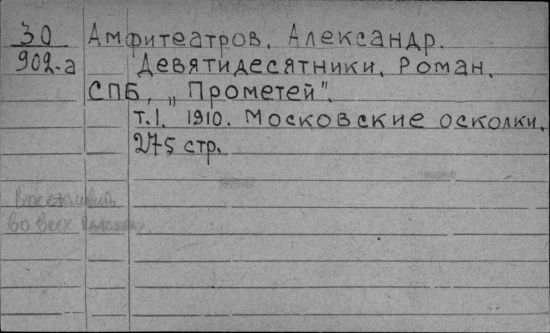 30 Амфитеатров, Александр.
902-а Девятидесятники. Роман.
СПБ, „Прометей".
т.I. 1910. Московские осколки.
275 стр.
во всех